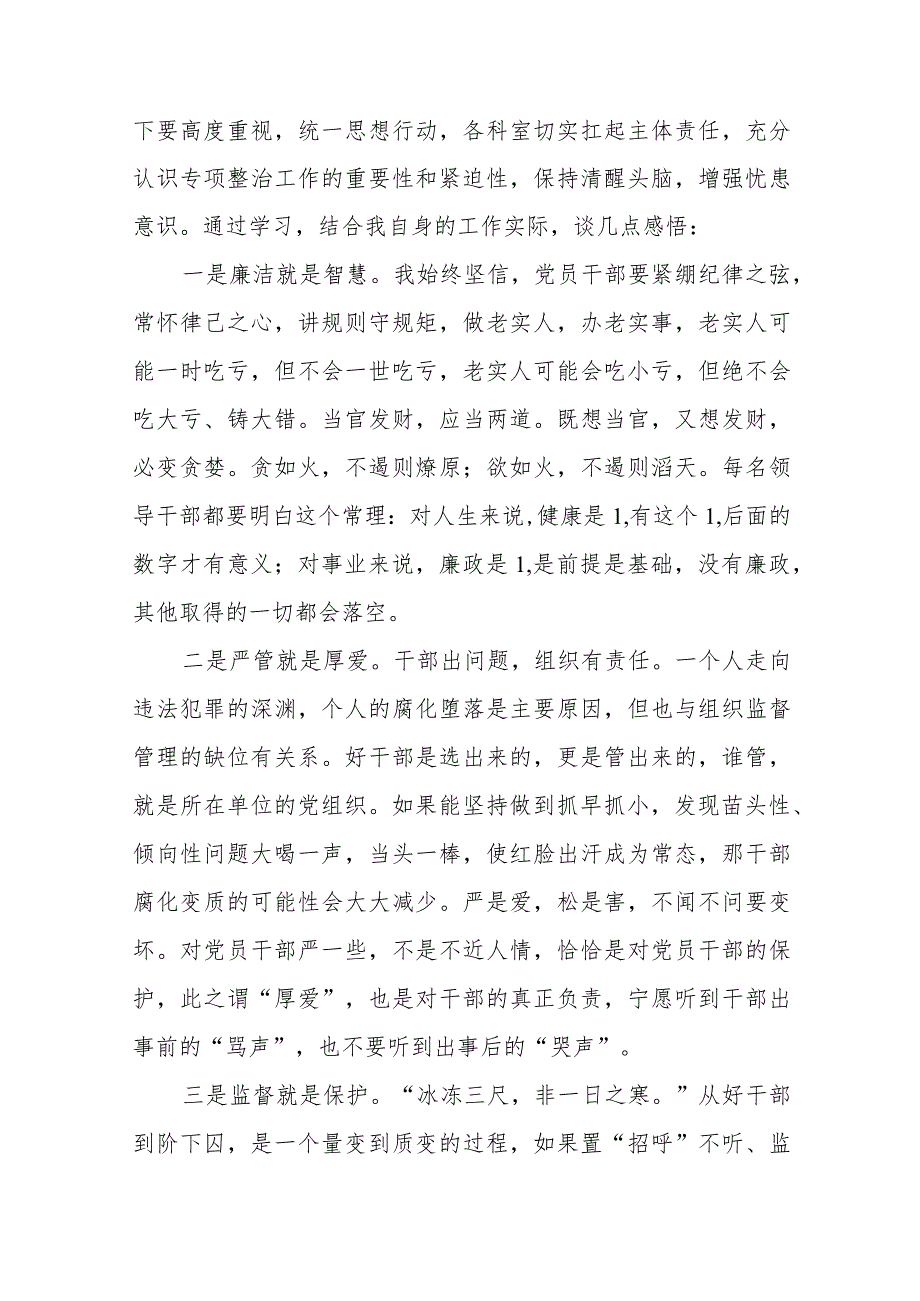 下要高度重视，统一思想行动，各科室切实扛起主体责任，充分
认识专项整治工作的重要性和紧迫性，保持清醒头脑，增强忧患
意识。通过学习，结合我自身的工作实际，谈几点感悟：
一是廉洁就是智慧。我始终坚信，党员干部要紧绷纪律之弦，
常怀律己之心，讲规则守规矩，做老实人，办老实事，老实人可
能一时吃亏，但不会一世吃亏，老实人可能会吃小亏，但绝不会
吃大亏、铸大错。当官发财，应当两道。既想当官，又想发财，
必变贪婪。贪如火，不遏则燎原；欲如火，不遏则滔天。每名领
导干部都要明白这个常理：对人生来说,健康是 1,有这个 1,后面的
数字才有意义；对事业来说，廉政是 1,是前提是基础，没有廉政，
其他取得的一切都会落空。
二是严管就是厚爱。干部出问题，组织有责任。一个人走向
违法犯罪的深渊，个人的腐化堕落是主要原因，但也与组织监督
管理的缺位有关系。好干部是选出来的，更是管出来的，谁管，
就是所在单位的党组织。如果能坚持做到抓早抓小，发现苗头性、
倾向性问题大喝一声，当头一棒，使红脸出汗成为常态，那干部
腐化变质的可能性会大大减少。严是爱，松是害，不闻不问要变
坏。对党员干部严一些，不是不近人情，恰恰是对党员干部的保
护，此之谓“厚爱”，也是对干部的真正负责，宁愿听到干部出
事前的“骂声”，也不要听到出事后的“哭声”。
三是监督就是保护。“冰冻三尺，非一日之寒。”从好干部
到阶下囚，是一个量变到质变的过程，如果置“招呼”不听、监